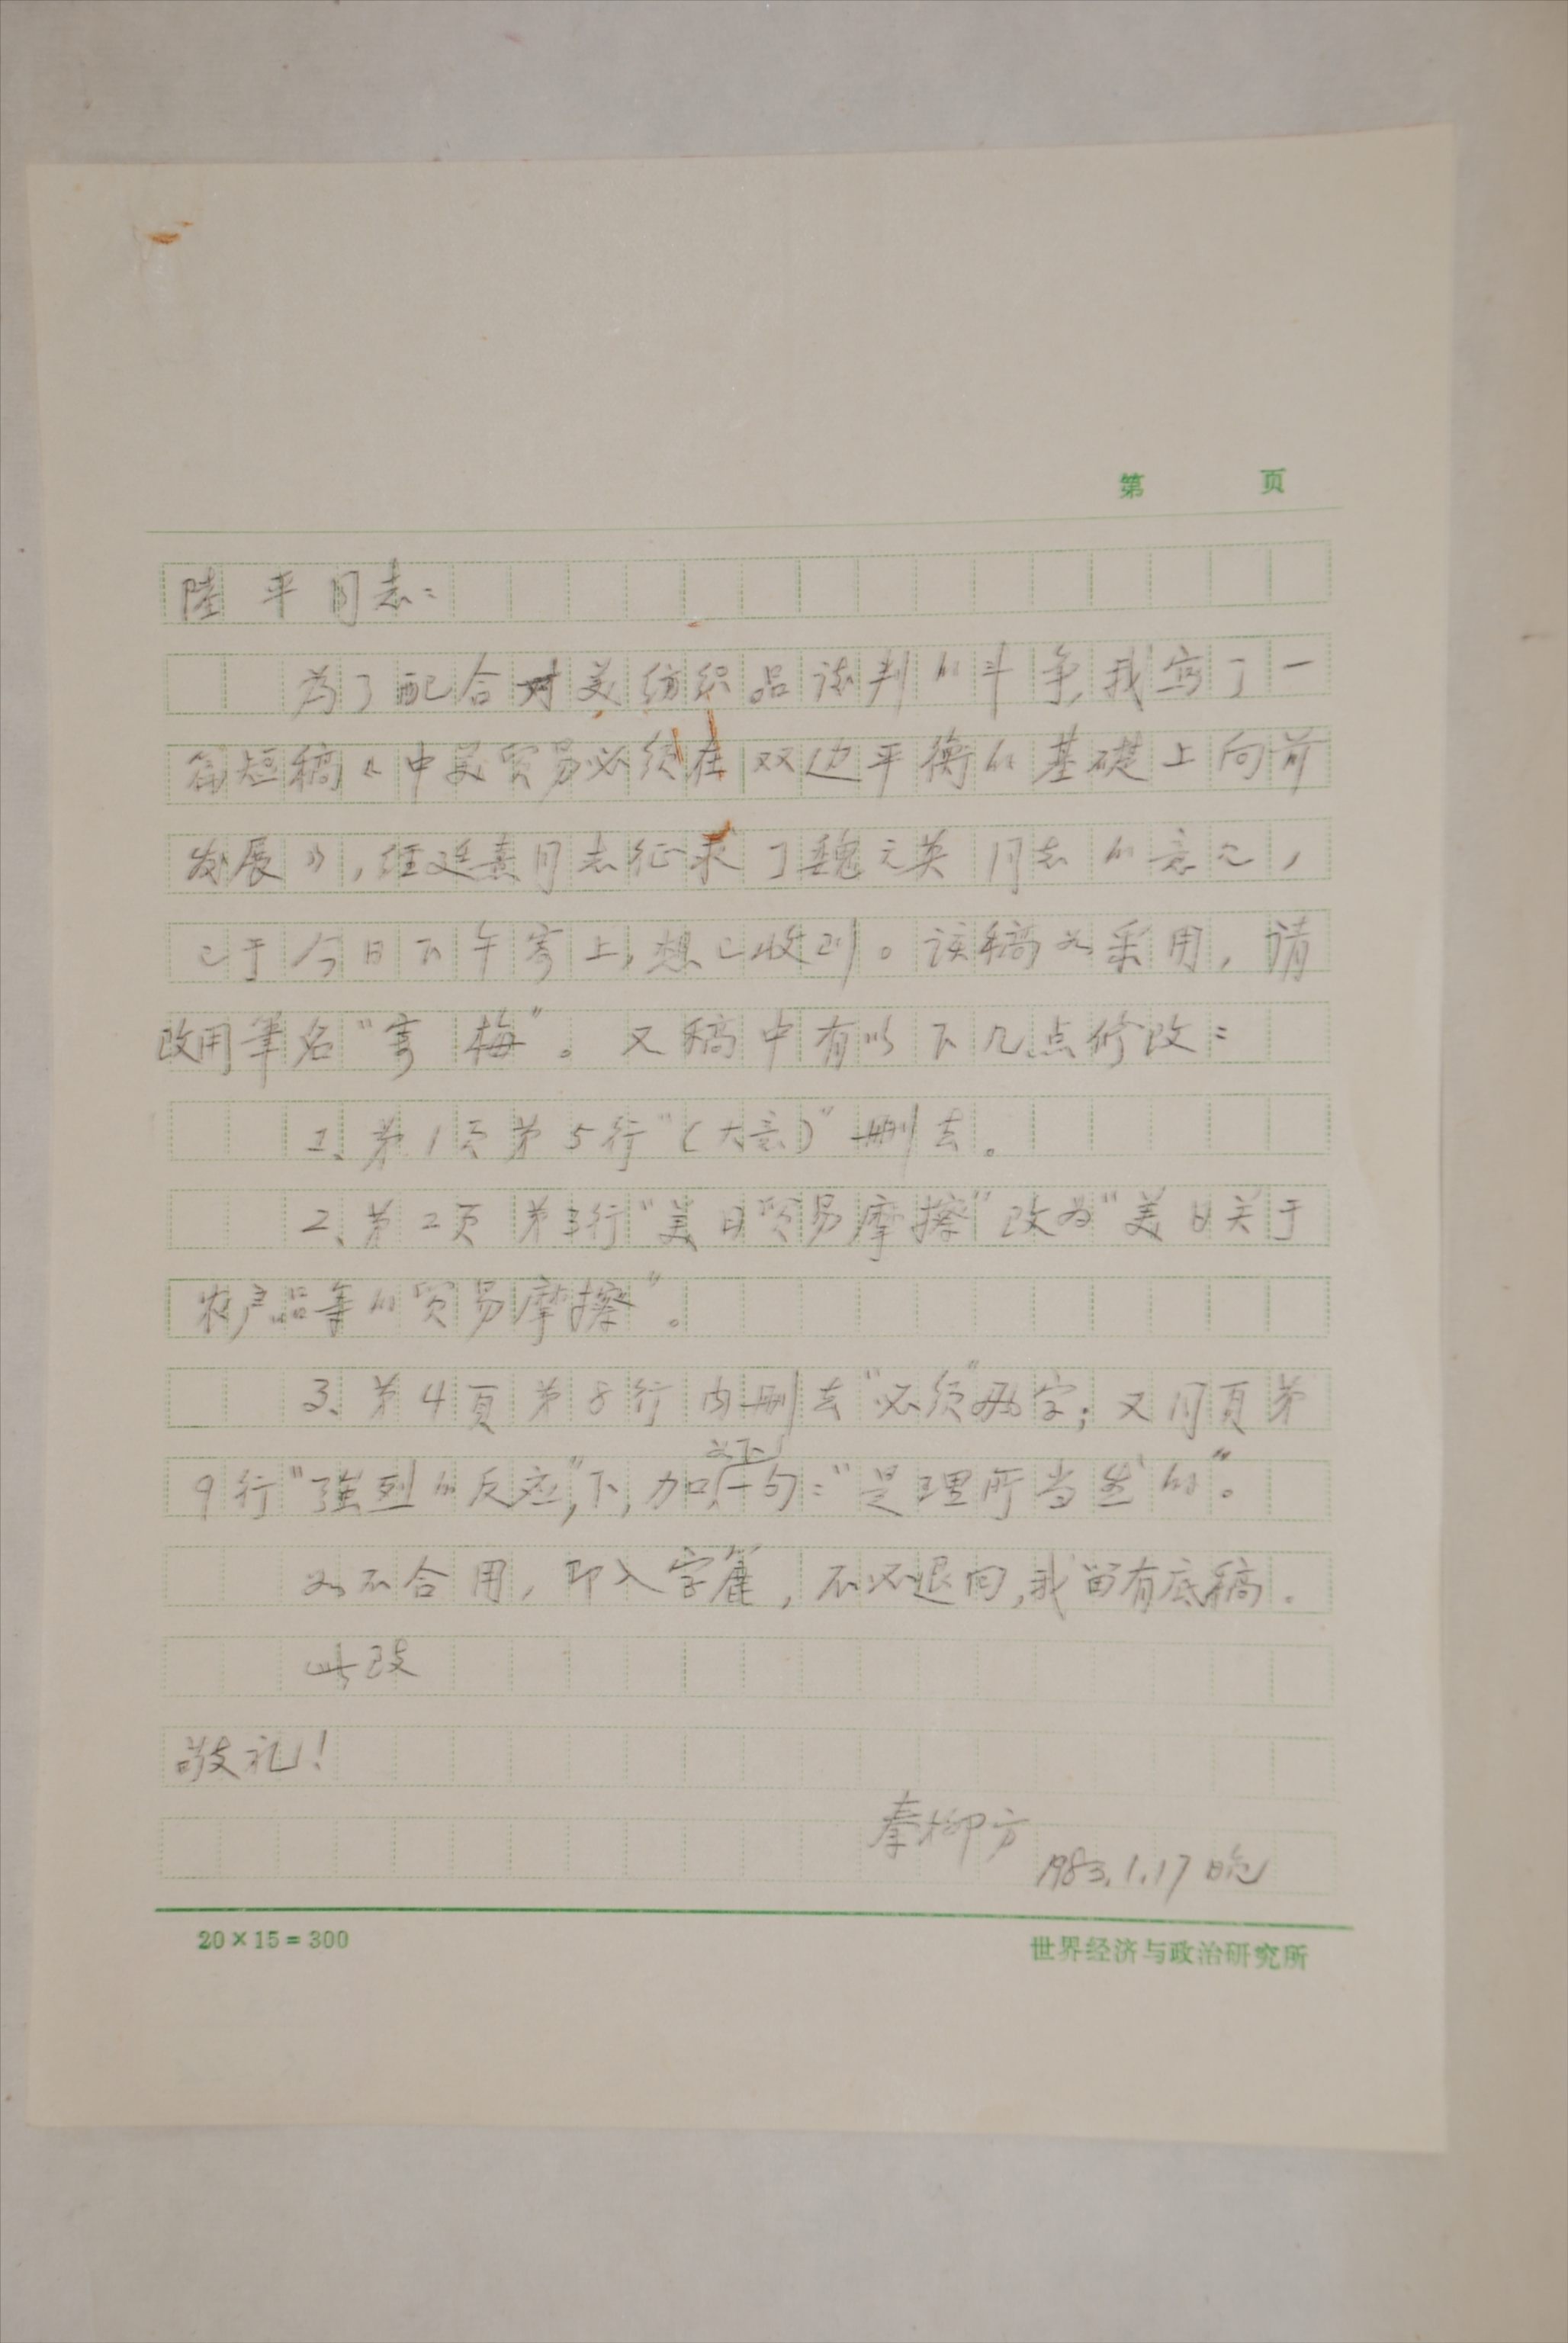 第 页
陆平同志：
为了配合对美纺织品谈判的斗争，我写了一
篇短稿《中美贸易必须在双边平衡的基礎上向前
发展》，经廷素同志征求了魏元英同志的意见，
已于今日下午寄上，想已收到。该稿如采用，请
改用筆名“寄梅”。又稿中有以下几点修改：
1、第1页第5行“（大意）”删去。
2、第2页第3行“美日贸易摩擦”改为“美日关于
农产品等的贸易摩擦”。
3、第4頁第8行内删去“必须”两字；又同頁第
9行“強烈的反应”，下，加以下一句：“是理所当然的”。
如不合用，即入字簏，不必退回，我留有底稿。
此致
敬礼！
秦柳方
1983.1.17晚
20×15=300
世界经济与政治研究所